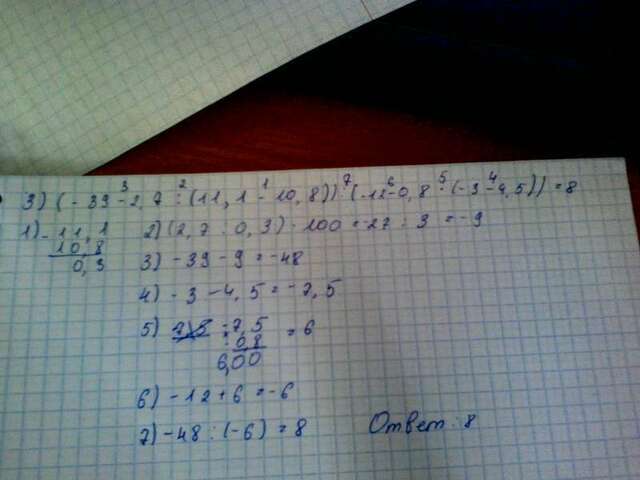 3) (-39-2,7:(11,1-10,8)):(-12-0,8·(-3-4,5))=8
3 2 1 7 6 5 4
1) -11,1
10,8
0,3
2) (2,7:0,3)·100=-27:3=-9
3) -39-9=-48
4) -3-4,5=-7,5
5) -7,5 =6
0,8
6,00
6) -12+6=-6
7) -48:(-6)=8
Ответ: 8